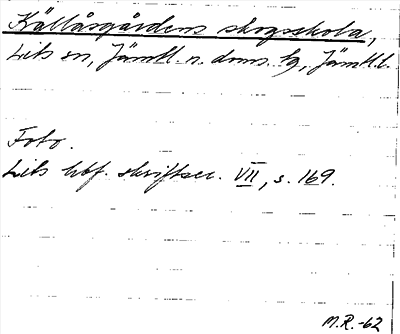 Källåsgårdens skogsskola,
Lits sn, Jämtl. n. doms. tg, Jämtl. l.
Foto.
Lits hbf. skriftser. VII, s. 169.
M.R.-62